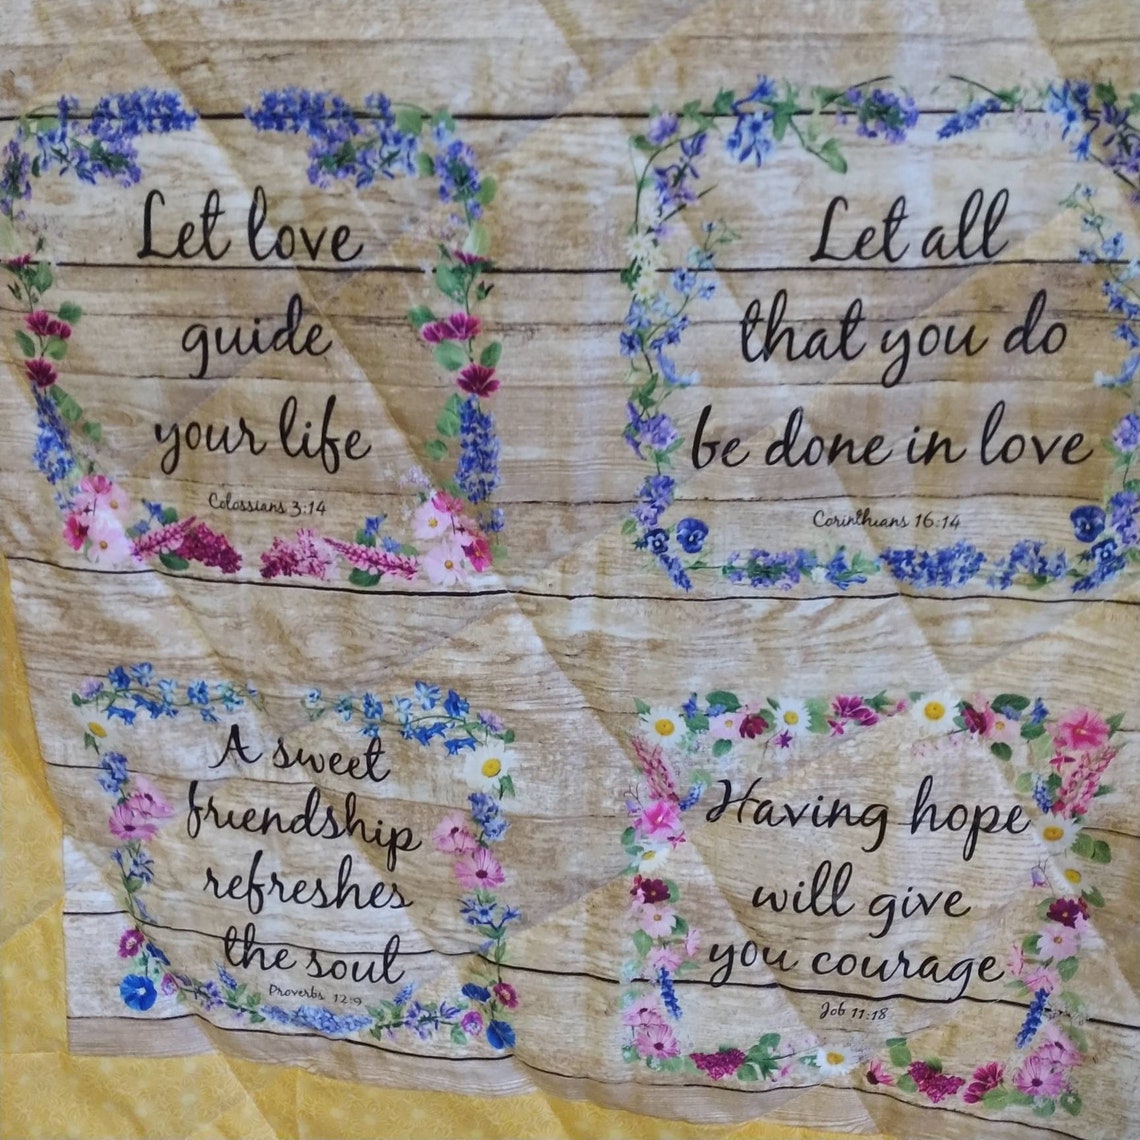 Let love
guide
your life
Colossians 3:14
Let all
that you do
be done in love
Corinthians 16:14
A sweet
friendship
refreshes
the soul
Proverbs 12:9
Having hope
will give
you courage
Job 11:18